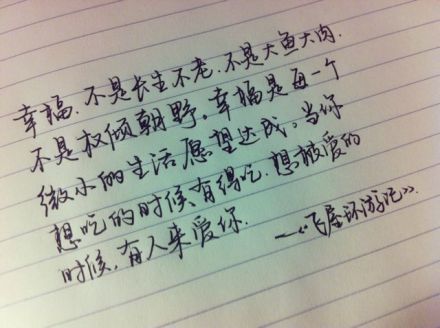 幸福,不是长生不老,不是大鱼大肉,
不是权倾朝野。幸福是每一个
微小的生活愿望达成,当你
想吃的时候有得吃,想被爱的
时候,有人来爱你.
——《飞屋环游记》.